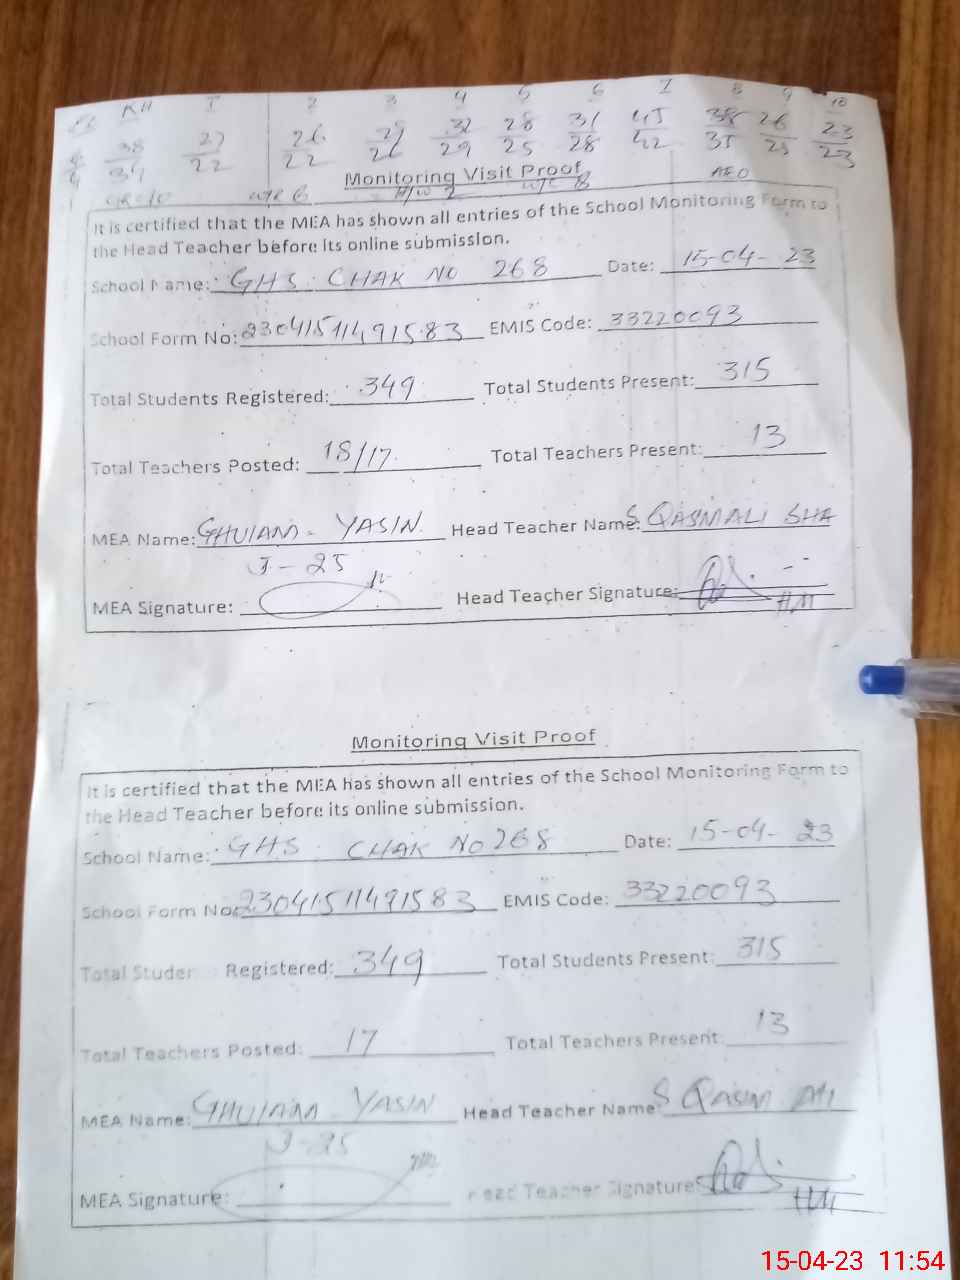 KH I 2 3 4 5 6 7 8 9 10
38 27 26 32 28 31 45 38 26 23
34 22 22 29 25 28 42 35 23
Monitoring Visit Proof AEO
It is certified that the MEA has shown all entries of the School Monitoring Form to
the Head Teacher before its online submission.
School Name: GHS. CHAK NO 268 Date: 15-04-23
School Form No: 23041511491583 EMIS Code: 33220093
Total Students Registered: 349 Total Students Present: 315
Total Teachers Posted: 18/17 Total Teachers Present: 13
MEA Name: GHULAM YASIN Head Teacher Name: S QASMALI SHA
J-25
MEA Signature: Head Teacher Signature: HM
Monitoring Visit Proof
It is certified that the MEA has shown all entries of the School Monitoring Form to
the Head Teacher before its online submission.
School Name: GHS. CHAK NO 268 Date: 15-04-23
School Form No: 23041511491583 EMIS Code: 33220093
Total Studer Registered: 349 Total Students Present: 315
Total Teachers Posted: 17 Total Teachers Present: 13
MEA Name: GHULAM YASIN Head Teacher Name: S QASIM ALI
J-25
MEA Signature: Head Teacher Signature: HM
15-04-23 11:54